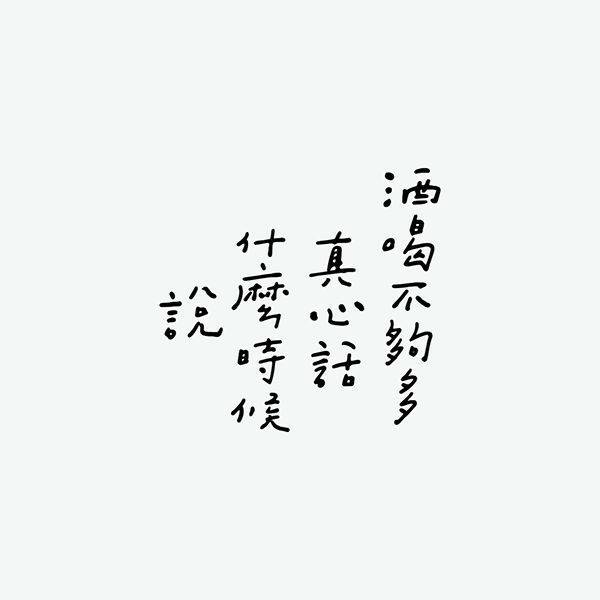 酒喝不夠多
真心話
什麼時候
說